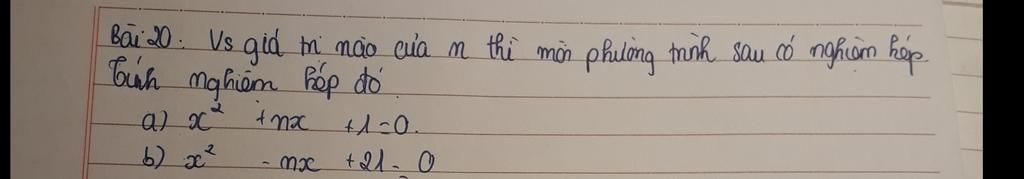 Bài 20. Vs giá trị nào của m thì mỗi phương trình sau có nghiệm kép.
Tính nghiệm kép đó
a) x² + mx + 1 = 0.
b) x² - mx + 21 = 0